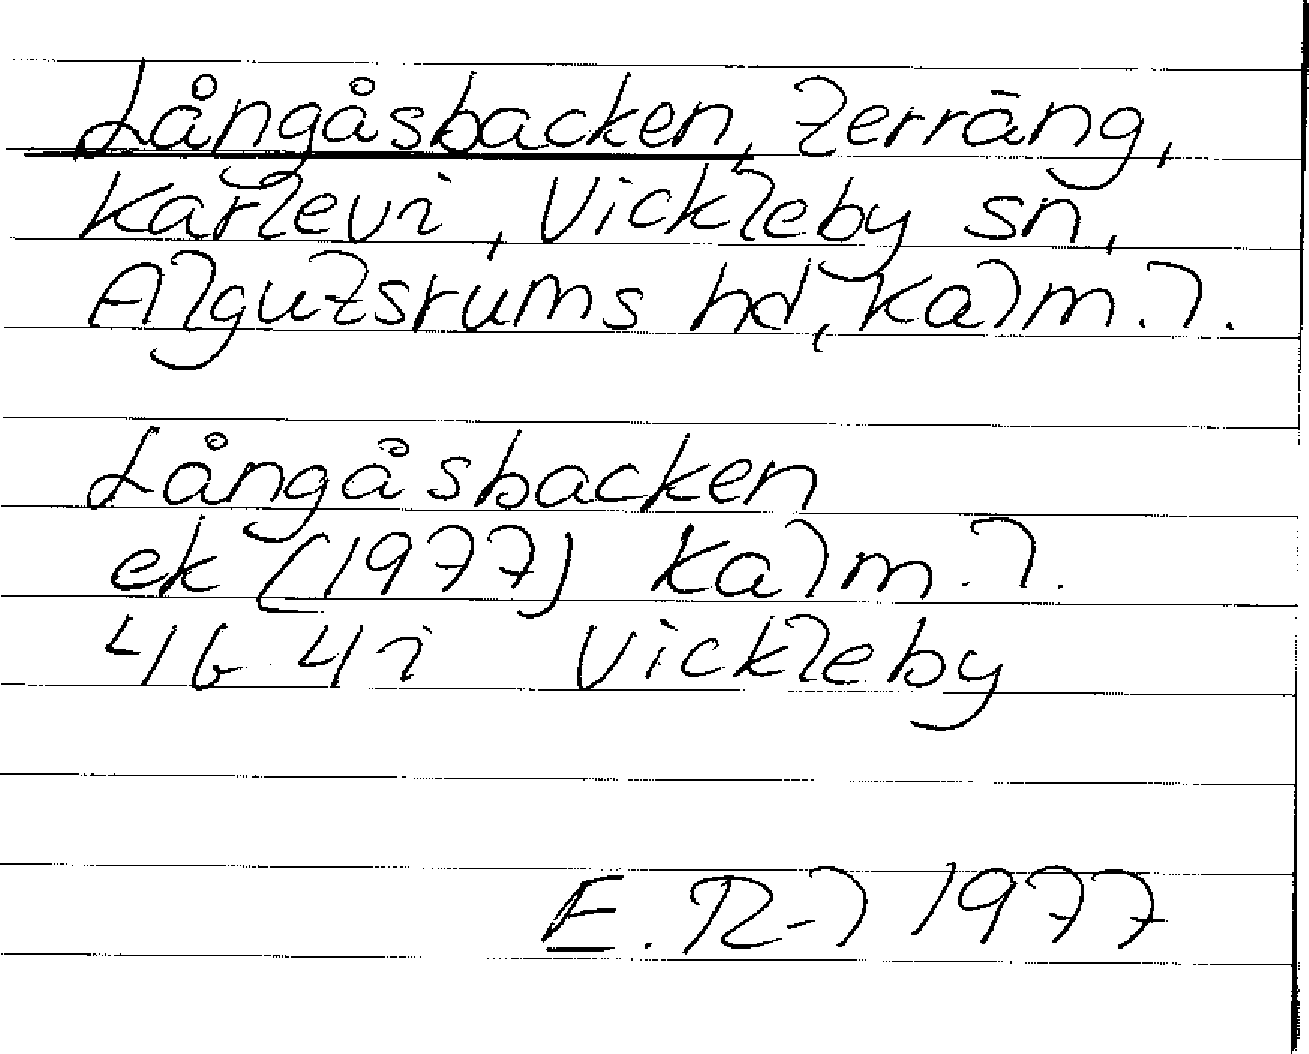 Långåsbacken, terräng,
Karlevi, Vickleby sn,
Algutsrums hd, Kalm. l.
Långåsbacken
ek (1977) Kalm. l.
4G 4i Vickleby
E. R-l 1977